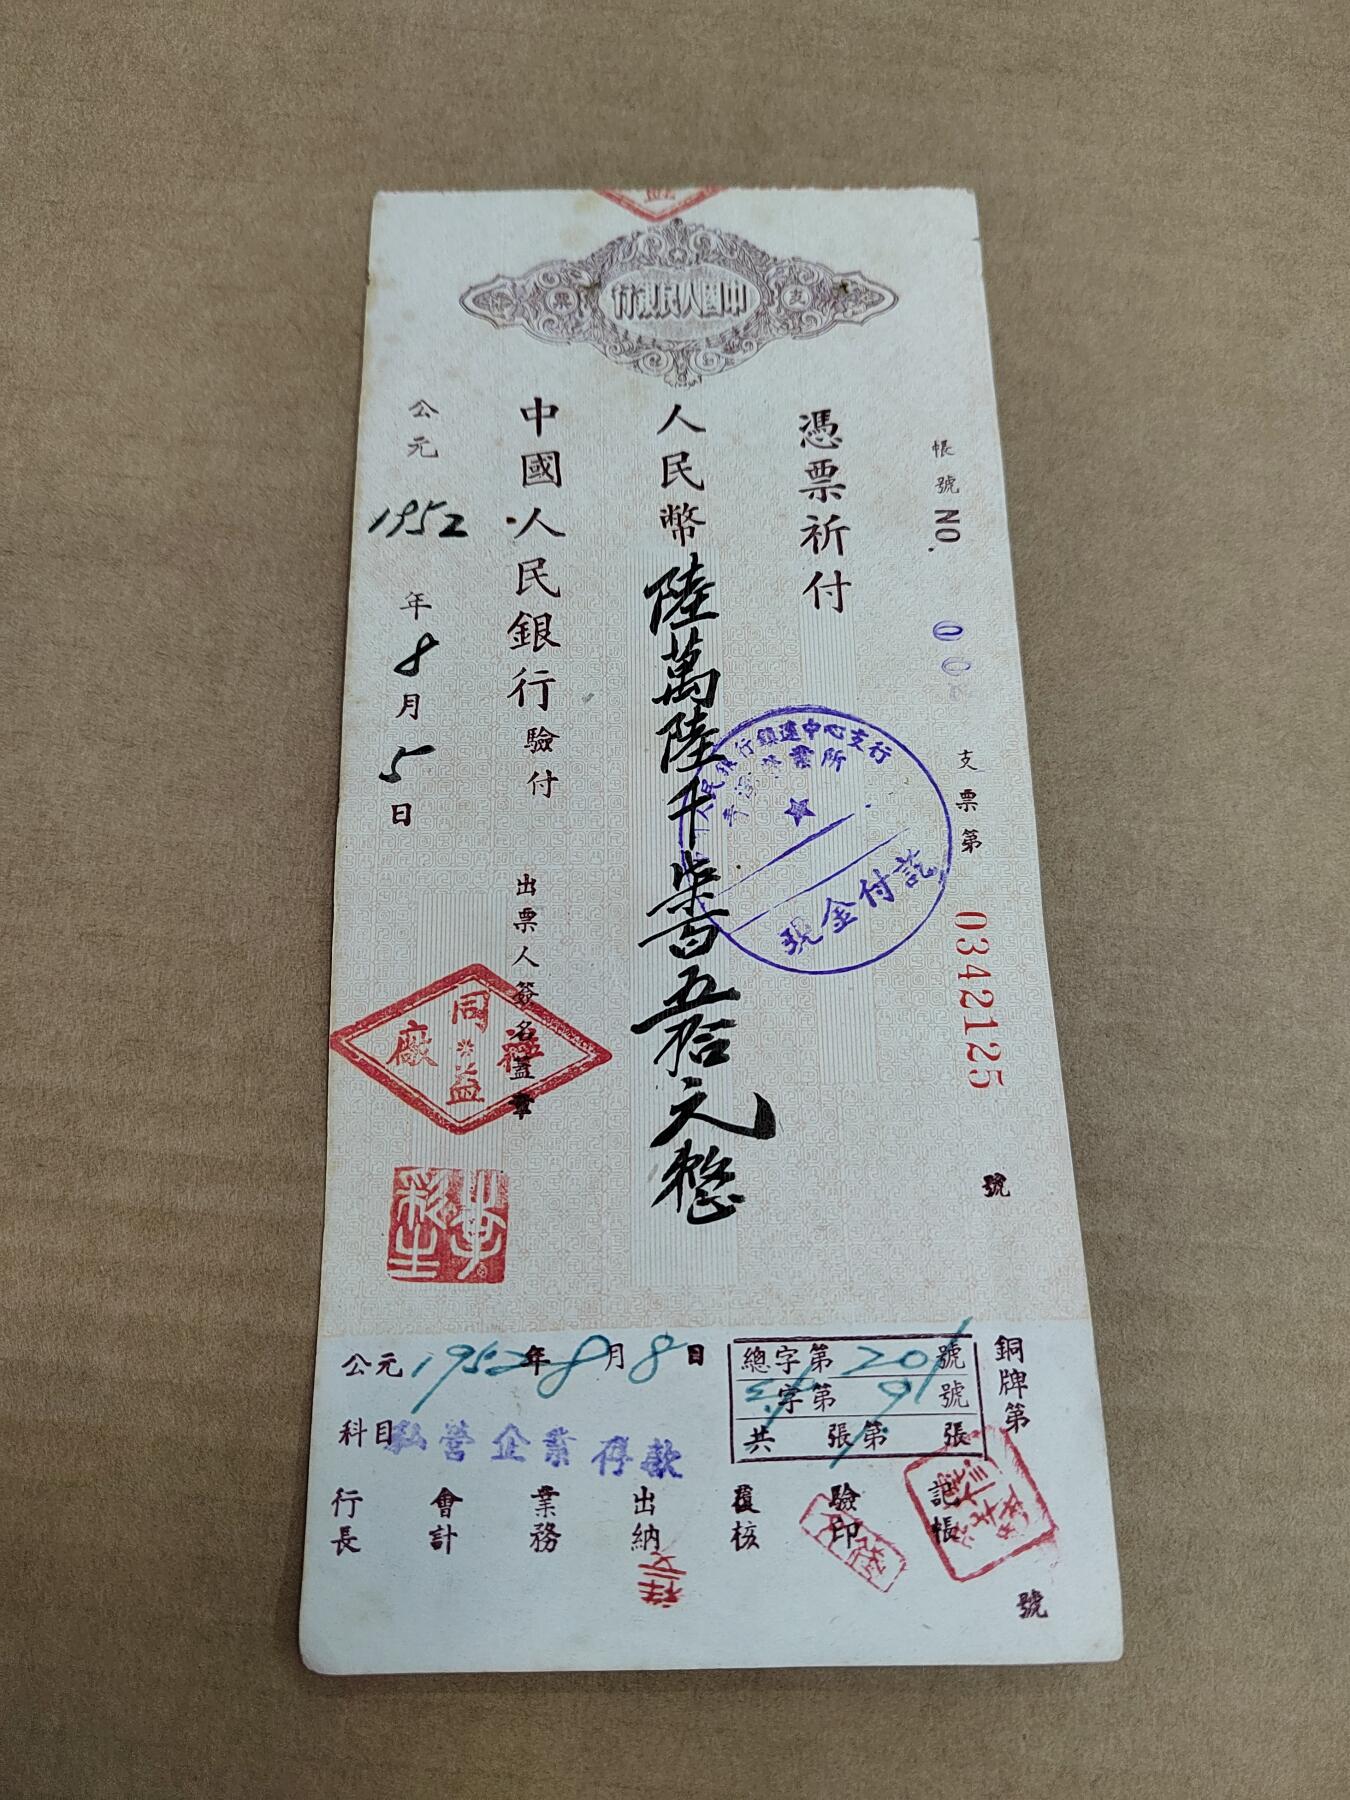 中國人民銀行
支票
帳號NO.
支票第 0342125 號
憑票祈付
人民幣陸萬陸千柒百五拾元整
中國人民銀行驗付
出票人簽名蓋章
公元1952年8月5日
行鎮遠中心支行
業所
現金付訖
同益
廠
銅牌第 號
總字第201號
字第91號
共 張第 張
公元1952年8月8日
科目私營企業存款
記帳
驗印
覆核
出納
業務
會計
行長